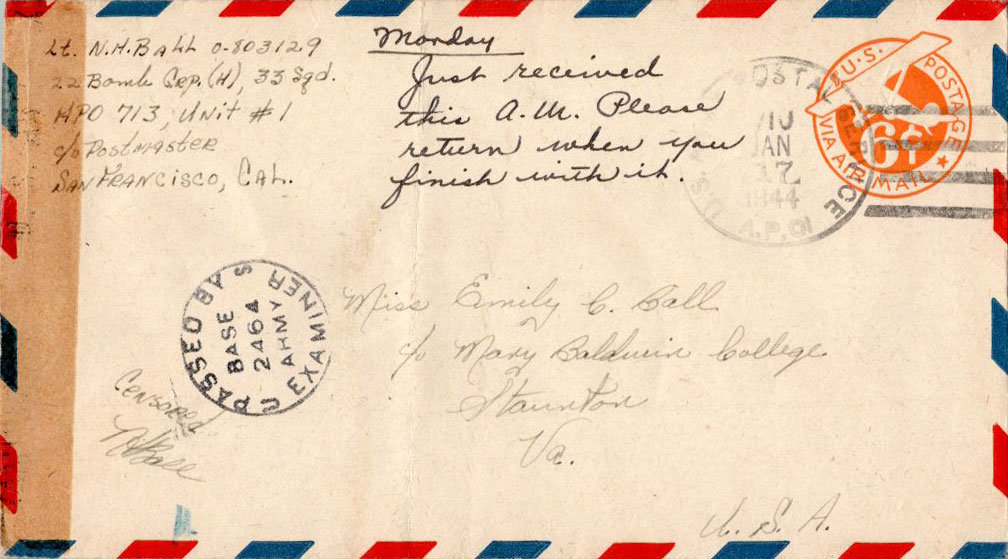 Lt. N.H. Ball O-803129
22 Bomb Grp. (H), 33 Sqd.
APO 713, Unit #1
c/o Postmaster
San Francisco, Cal.
Monday
Just received
this A.M. Please
return when you
finish with it.
U.S. POSTAGE
6¢
VIA AIR MAIL
U.S. POSTAL SERVICE
JAN
17
1944
A.P.O.
PASSED BY
BASE
2464
ARMY
U S
EXAMINER
Miss Emily C. Ball
c/o Mary Baldwin College
Staunton
Va.
U.S.A.
Censored
NHBall